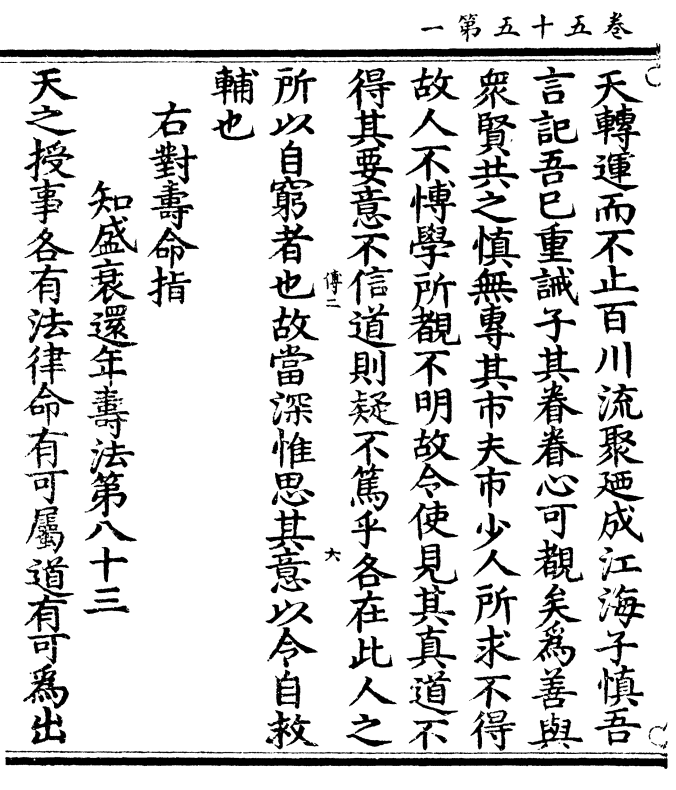 卷五十五第一
天轉運而不止百川流聚廼成江海子慎吾
言記吾已重誡子其眷眷心可覩矣爲善與
衆賢共之慎無專其市夫市少人所求不得
故人不博學所覩不明故令使見其真道不
得其要意不信道則疑不篤乎各在此人之
所以自窮者也故當深惟思其意以令自救
輔也
傅二
六
右對壽命指
知盛衰還年壽法第八十三
天之授事各有法律命有可屬道有可爲出